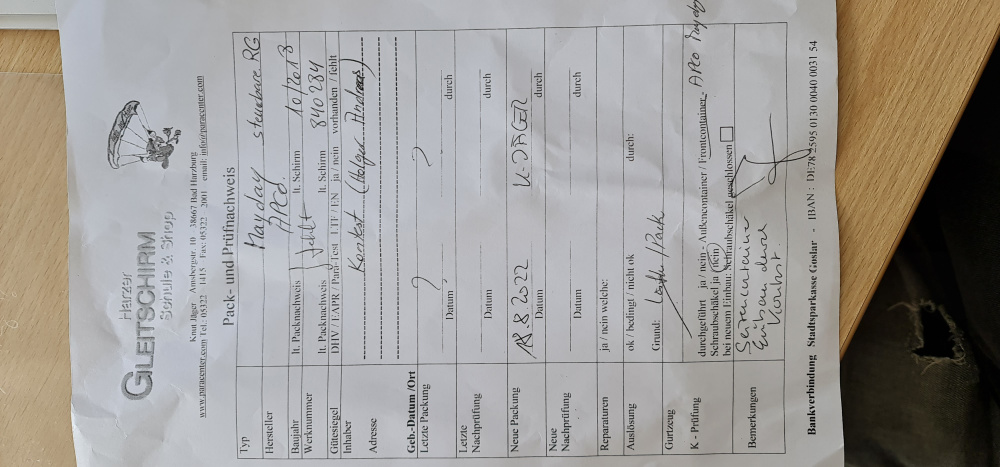 Harzer
GLEITSCHIRM
Schule & Shop
Knut Jäger Amsbergstr. 10 38667 Bad Harzburg
www.paracenter.com Tel.: 05322 1415 Fax: 05322 2001 email: info@paracenter.com
Pack- und Prüfnachweis
Typ Mayday steuerbare RG
Hersteller APCO
Baujahr lt. Packnachweis } fehlt lt. Schirm 10/2013
Werknummer lt. Packnachweis lt. Schirm 840284
Gütesiegel DHV / EAPR / Para Test LTF / EN ja / nein vorhanden / fehlt
Inhaber Kontest (Holger Andreas)
Adresse
Geb.-Datum /Ort
Letzte Packung ? ?
Datum durch
Letzte
Nachprüfung Datum durch
Neue Packung 18.8.2022 K. JÄGER
Datum durch
Neue
Nachprüfung Datum durch
Reparaturen ja / nein welche:
Auslösung ok / bedingt / nicht ok durch:
Gurtzeug Grund:
K - Prüfung durchgeführt ja / nein - Außencontainer / Frontcontainer - APCO Mayday
Schraubschäkel ja / nein
bei neuem Einbau: Schraubschäkel geschlossen
Bemerkungen Seitencontainer
Einbau durch
Kontest
Bankverbindung Stadtsparkasse Goslar - IBAN : DE78 2595 0130 0040 0031 54